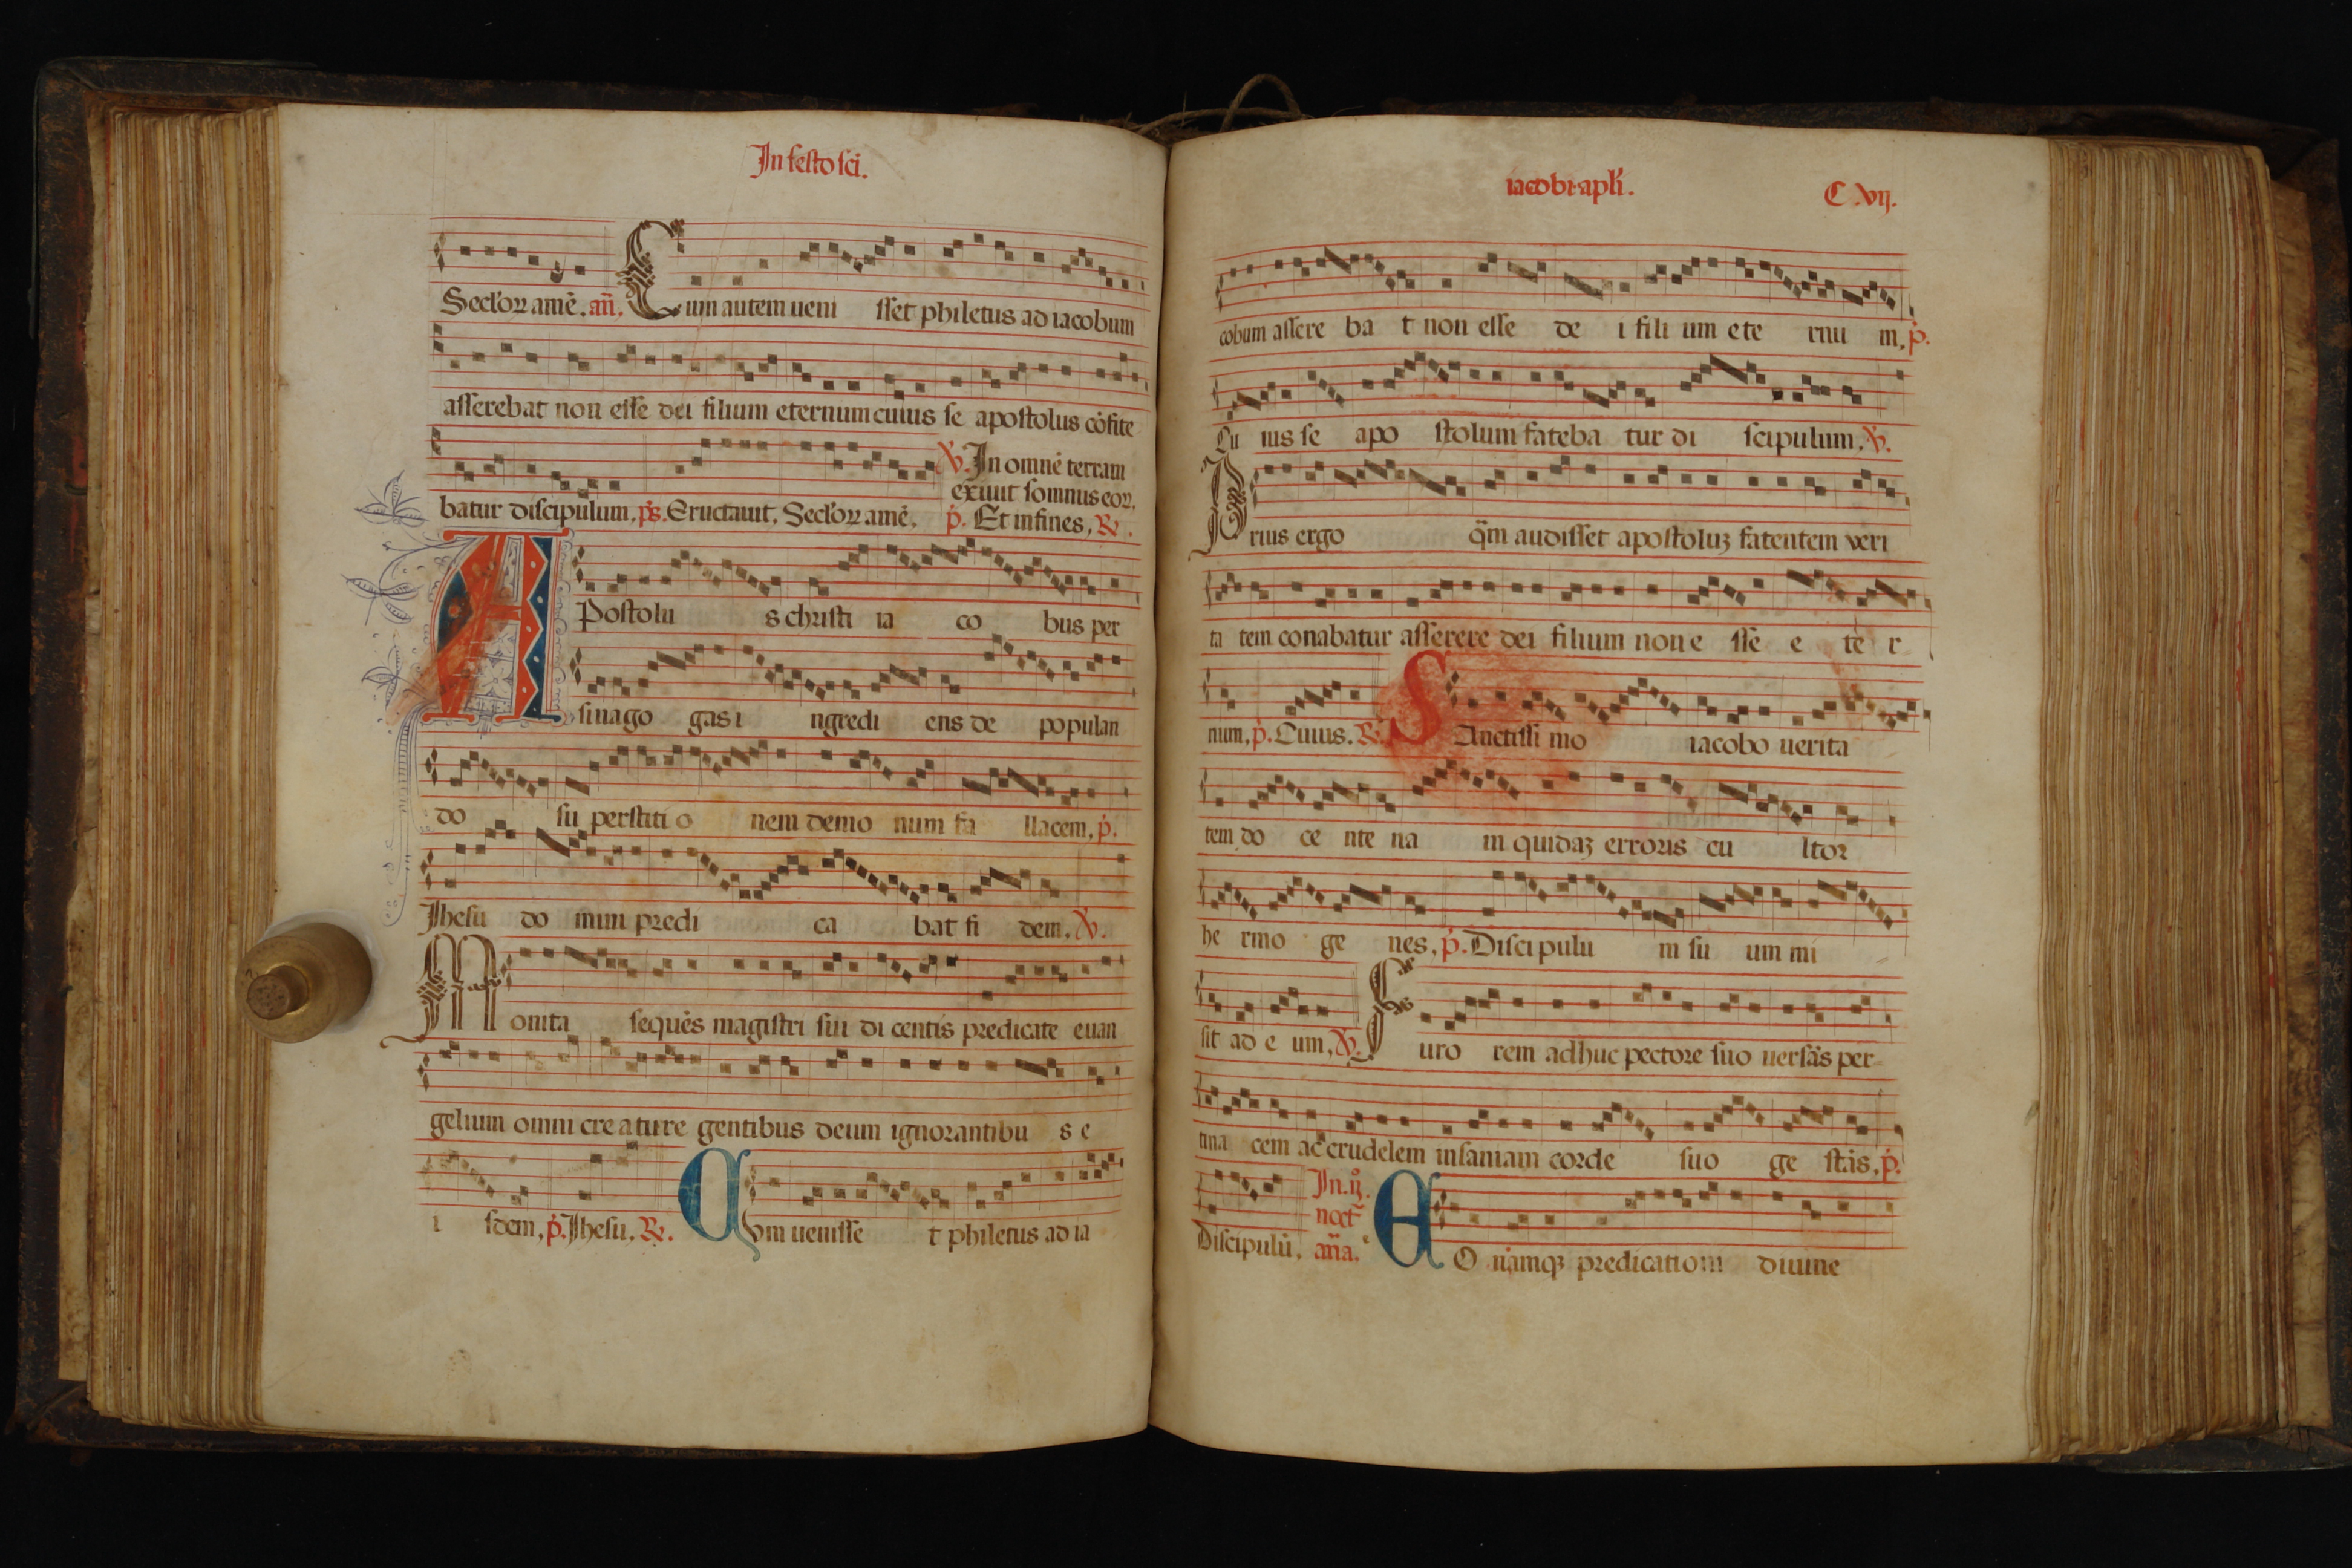 In festo sci.
Seclor amē. añ. Cum autem ueni sset philetus ad iacobum
asserebat non esse dei filium eternum cuius se apostolus cōfite
batur discipulum. ps. Eructauit. Seclor amē. V. In omnē terram
exiuit somnus eor.
p. Et in fines. R.
APostolu s christi ia co bus per
sinago gas i ngredi ens de populan
do su perstiti o nem demo num fa llacem. p.
Jhesu do mini predi ca bat fi dem. V.
Monita sequēs magistri sui di centis predicate euan
gelium omni cre a ture gentibus deum ignorantibu s e
i sdem. p. Jhesu. R. Qvm uenisse t philetus ad ia
iacobi apli. C.vij.
cobum assere ba t non esse de i fili um ete rnu m. p.
Cu ius se apo stolum fateba tur di scipulum. V.
Irius ergo qm̄ audisset apostoluꝫ fatentem veri
ta tem conabatur asserere dei filium non e sse e te r
num. p. Cuius. R. SAnctissi mo iacobo uerita
tem do ce nte na m quidaꝫ erroris cu ltor
he rmo ge nes. p. Discipulu m su um mi
sit ad e um. V. Furo rem adhuc pectore suo uersās per-
tina cem ac crudelem insaniam corde suo ge stās. p.
Discipulū. In .ij.
noct
aña. EO namqꝫ predicationi diuine